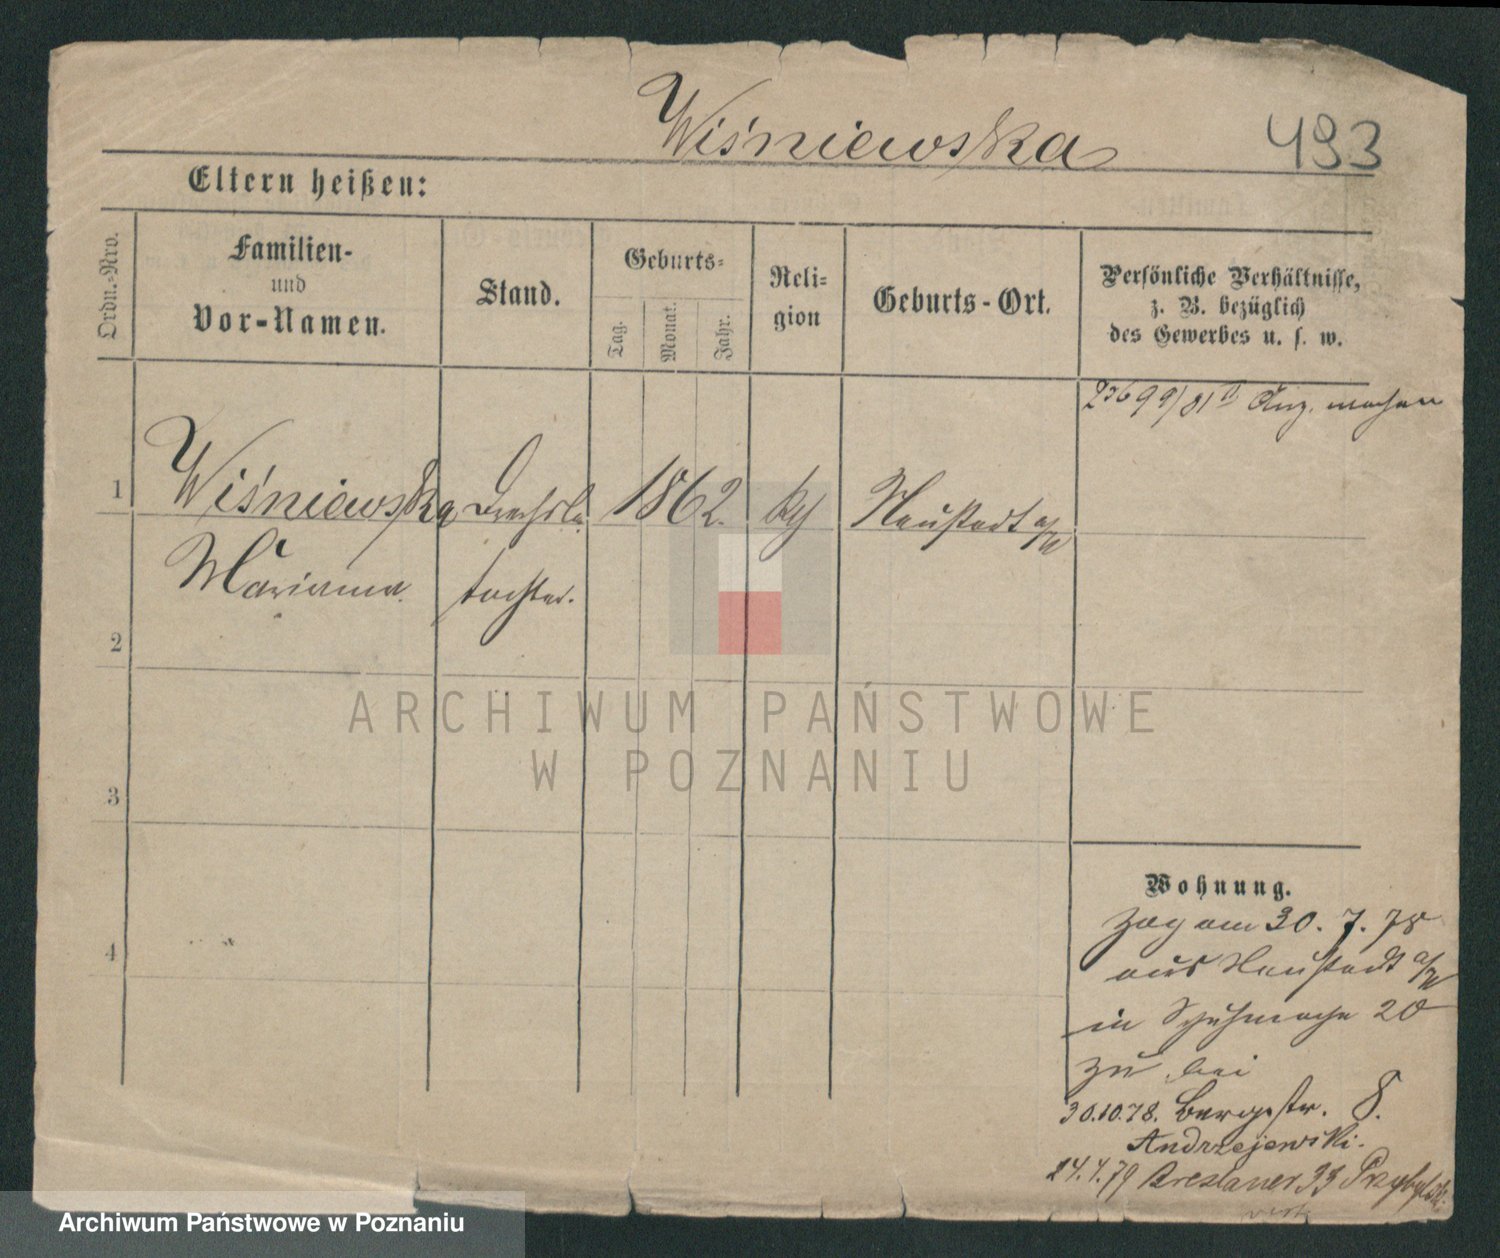 Wiśniewska 493
Eltern heißen:
Ordn.-Nro.
Familien-
und
Vor-Namen.
Stand.
Geburts-
Tag.
Monat.
Jahr.
Reli-
gion
Geburts-Ort.
Persönliche Verhältnisse,
z. B. bezüglich
des Gewerbes u. s. w.
1 Wiśniewska 1862. Neustadt a/W
Marianna tochter.
2
3
4
Wohnung.
Zog am 30. 7. 78
aus Neustadt a/W
in 20
zu bei
30.10.78. Bergstr. 8.
Andrzejewski.
24.4.79 Breslauer 33 Przybylski
ARCHIWUM PAŃSTWOWE
W POZNANIU
Archiwum Państwowe w Poznaniu